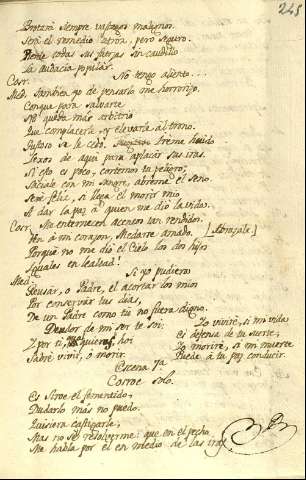 245
Brotará siempre vastagos malignos.
Será el remedio atroz, pero seguro.
Pierde todas sus fuerzas sin caudillo
La audacia popular.
Cosr. No tengo aliento...
Med. Tambien yo de pensarlo me horrorizo.
Conque para salvarte
No queda mas arbitrio
Que complacerla, y elevarla al trono.
Gustoso se le cedo. Iréme huido
Lexos de aqui para aplacar sus iras.
Si esto es poco, cortemos tu peligro;
Saciale con mi sangre, abreme el seno.
Seré feliz, si llega el morir mio
A dar la paz á quien me dió la vida.
Cosr. Me enternecen acentos tan rendidos.
Ven á mi corazon, Medarse amado. [Abrazale.]
Porqué no me dió el Cielo los dos hijos
Iguales en lealtad!
Med. Si yo pudiera
Rehusar, o Padre, el acortar los mios
Por conservar tus dias,
De un Padre como tú no fuera digno.
Deudor de mi ser te soi;
Y por ti, qual quieras hoi
Sabré vivir, ó morir.
Yo viviré, si mi vida
Es defensa de tu suerte;
Yo moriré, si mi muerte
Puede á tu paz conducir.
Escena 7a
Cosroe solo.
Es Siroe el fementido;
Dudarlo más no puedo.
Quisiera castigarle;
Mas no sé resolverme: que en el pecho
Me habla por él en medio de las iras